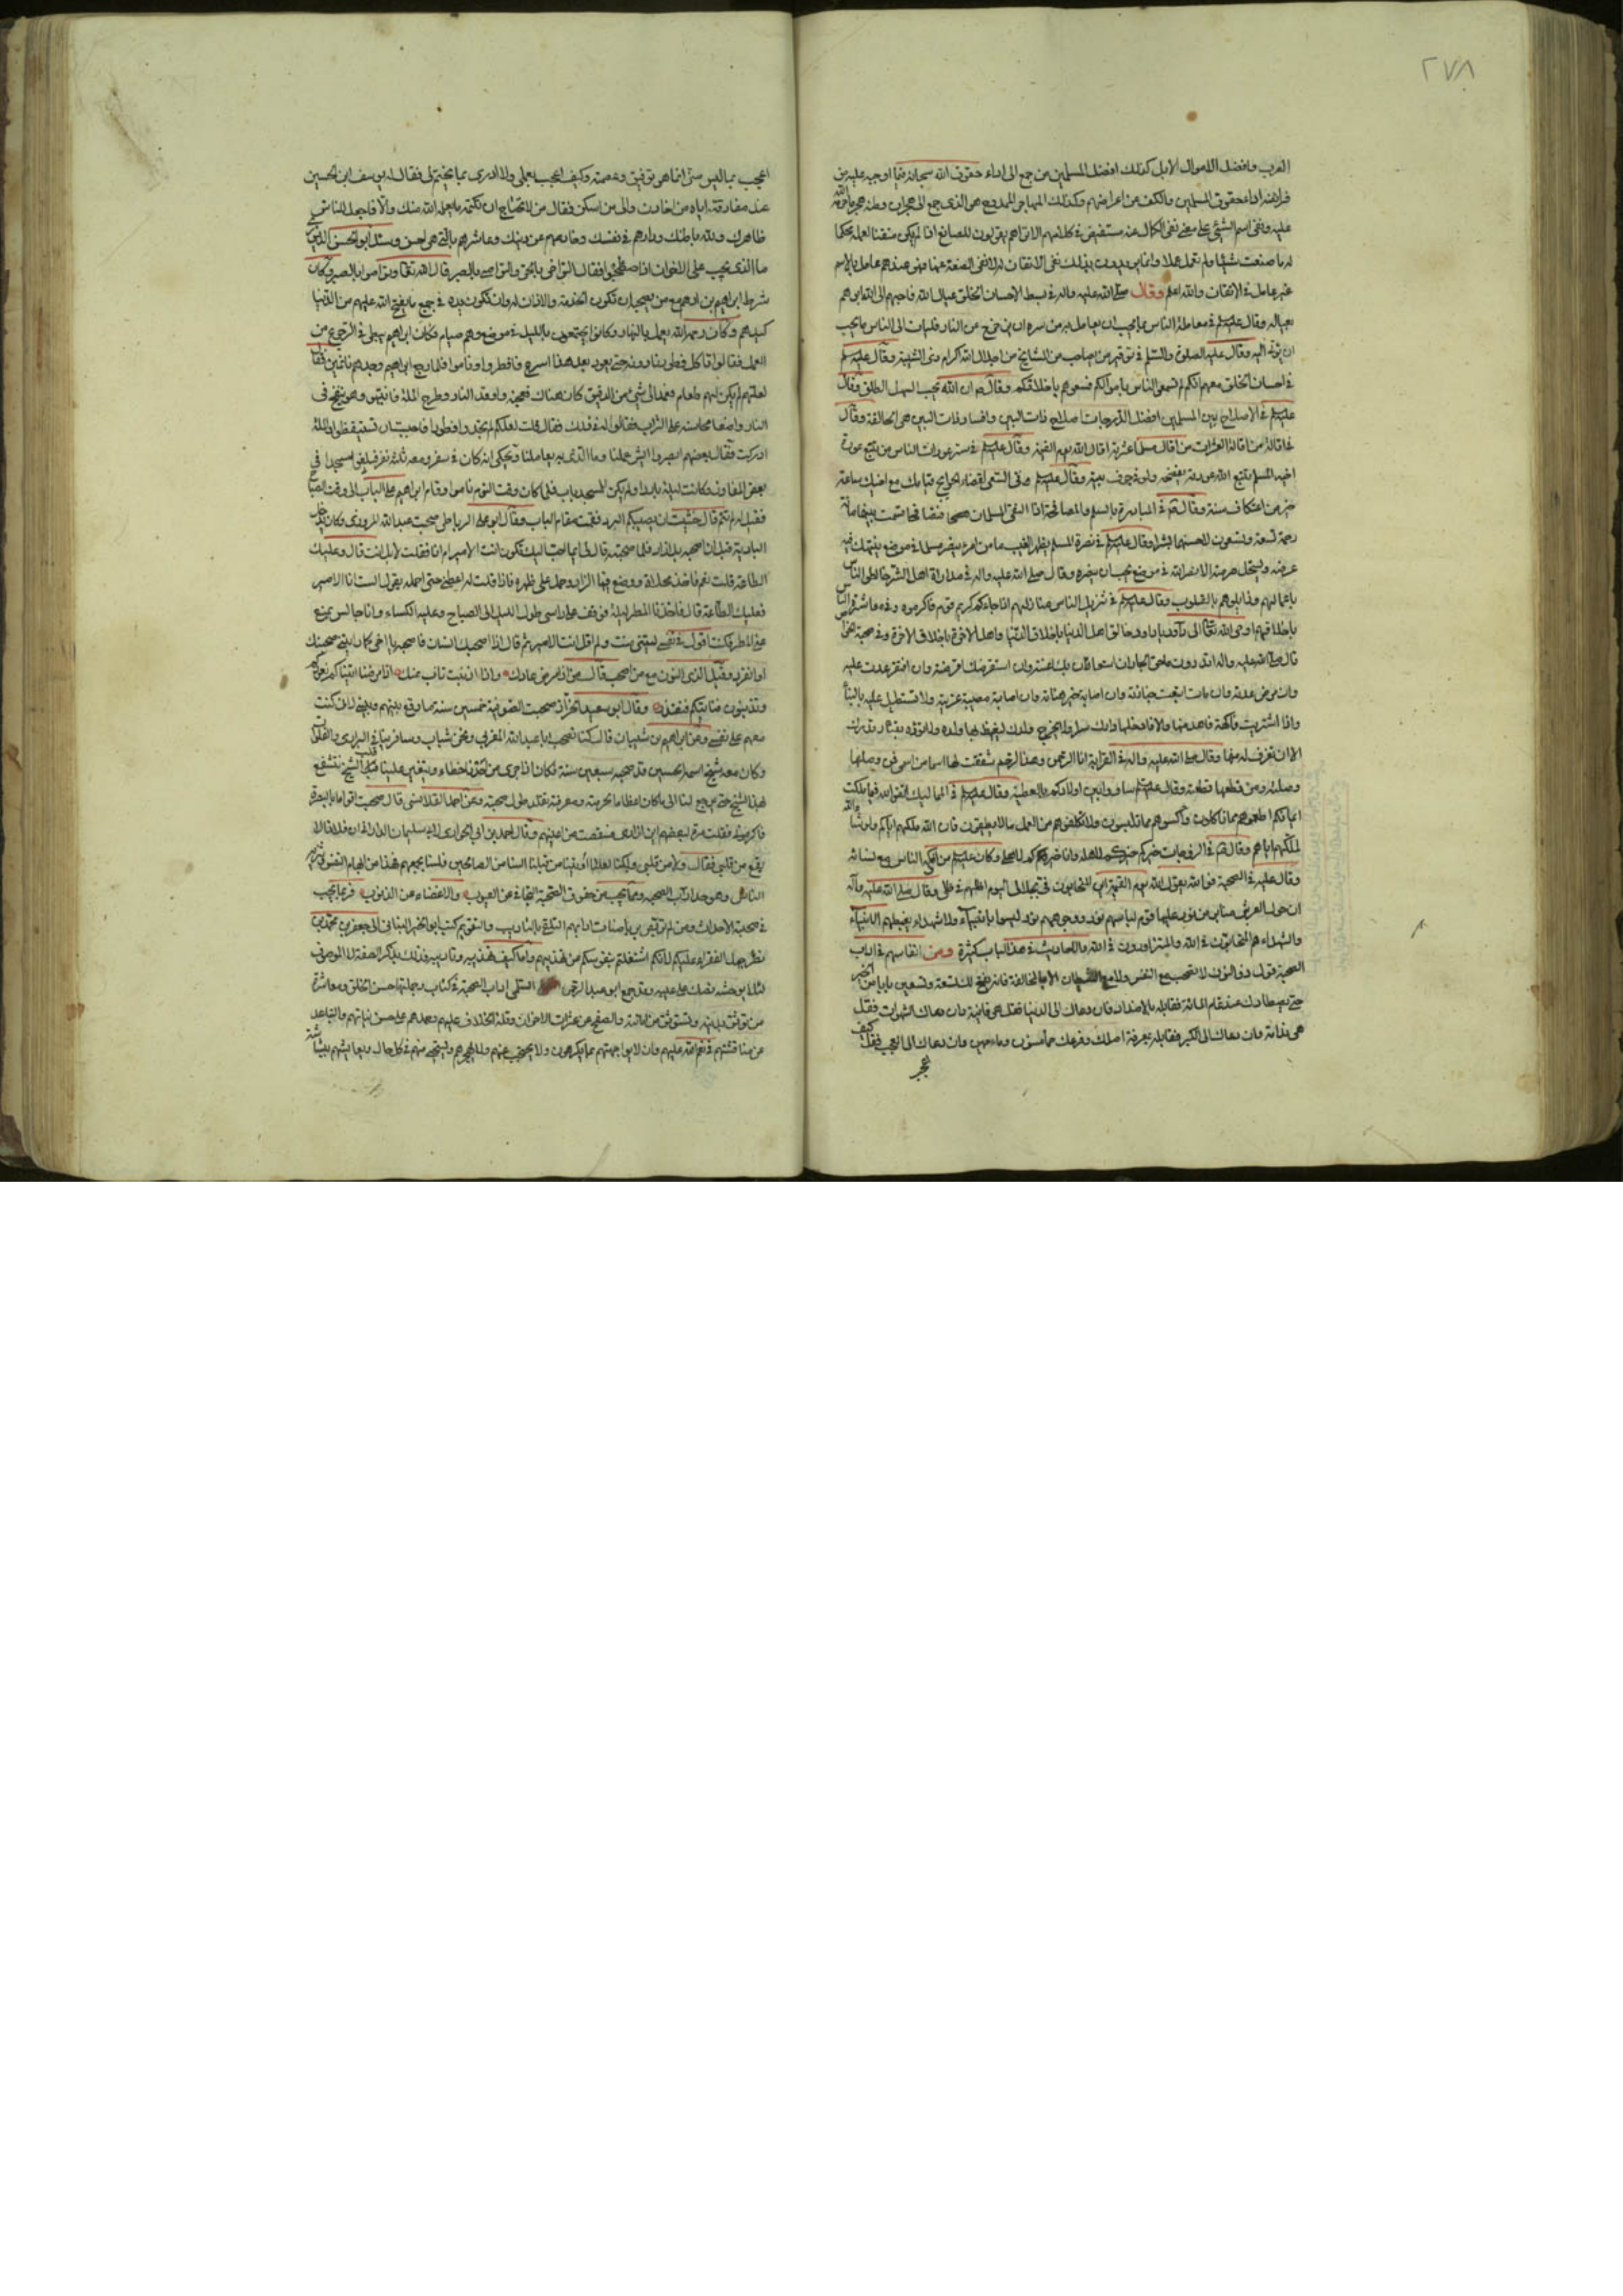 ٢٧٨
العرب وافضل الاموال الابل كذلك افضل المسلمين من جمع الى اداء حقوق الله سبحانه فيما اوجبه عليه من
فرايضه اداء حقوق المسلمين والكف عن اعراضهم وكذلك المهاجر الممدوح هو الذى جمع الى هجران وطنه هجر ما حرم الله
عليه ونفى اسم الشئ على معنى نفى الكمال عنه مستفيض فى كلامهم الا تراهم يقولون للصانع اذا لم يكن متقنا لعمله محكما
له ما صنعت شيئا ولم تعمل عملا وانما يريدون بذلك نفى الاتقان له لا نفى الصنعة عنها فهو عندهم عامل بالاسم
غير عامل فى الاتقان والله اعلم وقال صلى الله عليه واله فى بسط الاحسان الخلق عيال الله فاحبهم الى الله ابرهم
بعياله وقال عليه السلم فى معاملة الناس بما يحب ان يعامل به من سره ان يزحزح عن النار فليات الى الناس ما يحب
ان يؤتى اليه وقال عليه الصلوة والسلم فى توقير من صاحب من المشايخ من اجلال الله اكرام ذى الشيبة وقال عليه السلم
فى احسان الخلق معهم انكم لم تسعوا الناس باموالكم فسعوهم باخلاقكم وقال ص ان الله يحب السهل الطلق وقال
عليه السلم فى الاصلاح بين المسلمين افضل الدرجات اصلاح ذات البين وافساد ذات البين هى الحالقة وقال
فى اقالة من اقالة العثرات من اقال مسلما عثرته اقال الله يوم القيمة وقال عليه السلم فى ستر عورات الناس من تتبع عورة
اخيه المسلم تتبع الله عورته يفضحه ولو فى جوف بيته وقال عليه السلم وفى السعى لقضاء الحوايج قيامك مع اخيك ساعة
خير من اعتكاف سنة وقال فى المبادرة بالسلم والمصافحة اذا التقى المسلمان فتصافحا قسمت بينهما مائة
رحمة تسعة وتسعون لاحسنهما بشرا وقال عليه السلم فى نصرة المسلم بظهر الغيب ما من امرء ينصر مسلما فى موضع ينتهك فيه
عرضه ويستحل حرمته الا نصره الله فى موضع يحب ان ينصره وقال صلى الله عليه واله فى مداراة اهل الشر خالطوا الناس
باعمالهم وزايلوهم بالقلوب وقال عليه السلم فى تنزيل الناس منازلهم اذا جاءكم كريم قوم فاكرموه وفى معاشرة الناس
باخلاقهم اوحى الله تعالى الى داود يا داود خالق اهل الدنيا باخلاق الدنيا واهل الاخرة باخلاق الاخرة وفى صحبة الجار
قال صلى الله عليه واله اتدرون ما حق الجار ان استعانك اعنته وان استقرضك اقرضته وان افتقر عدت عليه
وان مرض عدته وان مات اتبعت جنازته وان اصابه خير هنأته وان اصابه مصيبة عزيته ولا تستطيل عليه بالبناء
واذا اشتريت فاكهة فاهد منها والا فادخلها دارك سرا ولا يخرج ولدك ليغيظ بها ولده ولا تؤذه بقتار قدرك
الا ان تغرف له منها وقال صلى الله عليه واله فى القرابة انا الرحمن وهذا الرحم شققت لها اسما من اسمى فمن وصلها
وصلته ومن قطعها قطعته وقال عليه السلم ساووا بين اولادكم بالعطية وقال عليه السلم فى المماليك اتقوا الله فيما ملكت
ايمانكم اطعموهم مما تاكلون واكسوهم مما تلبسون ولا تكلفوهم من العمل ما لا يطيقون فان الله ملكهم اياكم ولو شاء الله
لملكهم اياهم وقال فى الزوجات خيركم خيركم لاهله وانا خيركم لاهلى وكان عليه السلم من افكه الناس مع نسائه
وقال عليه فى الصحبة فى الله يقول الله يوم القيمة اين المتحابون فى بجلالى اليوم اظلهم فى ظلى وقال صلى الله عليه واله
ان حول العرش منابر من نور عليها قوم لباسهم نور ووجوههم نور ليسوا بانبياء ولا شهداء يغبطهم الانبياء
والشهداء هم المتحابون فى الله والمتزاورون فى الله والاحاديث فى هذا الباب كثيرة ومن انفاسهم فى اداب
الصحبة قول ذو النون لا تصحب مع النفس ولا مع الشيطان الا بالمخالفة فانه يفتح لك تسعة وتسعين بابا من الخير
حتى يصطادك عند تمام المائة فقابله بالاضداد فان دعاك الى الدنيا فقل هى فانية وان دعاك الشهوات فقل
هى ندامة وان دعاك الى الكبر فقابله بمعرفة اصلك وفرعك حمأ مسنون وماء مهين وان دعاك الى العجب فقل كيف
اعجب
اعجب بما ليس منى انما هى توفيق وعصمة وكيف اعجب بعملى ولا ادرى بما يختم لى فقال ليوسف ابن الحسين
عند مفارقته اياه من اخادن والى من اسكن فقال من لا تحتاج ان تكتمه ما يعلمه الله منك والا فاجعل للناس
ظاهرك ولله باطنك ودارهم فى نفسك وعاشرهم بالتى هى احسن وسئل ابو الحسن
ما الذى يجب على الاخوان اذا اصطحبوا فقال التواصى بالحق والتواصى بالصبر قال الله تعالى وتواصوا بالصبر وكان
شرط ابراهيم بن ادهم مع من يصحبه ان تكون الخدمة والاذان له وان تكون يده فى جميع ما يفتح الله عليهم من الدنيا
كيدهم وكان رحمه الله يعمل بالنهار وكانوا يجتمعون بالليل فى موضع وهم صيام فكان ابراهيم يبطى فى الرجوع من
العمل فقالوا تعالوا ناكل فطورنا دونه حتى يعود بعد هذا اسرع فافطروا وناموا فلما رجع ابراهيم وجدهم نائمين فقال
لعلهم لم يكن لهم طعام فعمد الى شئ من الدقيق كان هناك فعجنه واوقد النار وطرح الملة فانتبهوا وهو ينفخ فى
النار واضعا محاسنه على التراب فقالوا له فى ذلك فقال قلت لعلكم لم تجدوا فطورا فاحببت ان تستيقظوا والملة
ادركت فقال بعضهم ابصروا ايش عملنا وما الذى به يعاملنا ويحكى انه كان فى سفر ومعه ثلثة نفر فبلغوا مسجدا فى
بعض المفاوز وكانت ليلة باردة ولم يكن للمسجد باب فلما كان وقت النوم ناموا وقام ابراهيم على الباب الى وقت الصباح
فقيل له لم تنم قال خشيت ان يصيبكم البرد فقمت مقام الباب وقال ابو على الرباطى صحبت عبد الله المروزى وكان يدخل
البادية قبل ان اصحبه بلا زاد فلما صحبته قال لى ايما احب اليك تكون انت الامير ام انا فقلت لا بل انت قال وعليك
الطاعة قلت نعم فاخذ مخلاة ووضع فيها الزاد وحمل على ظهره فاذا قلت له اعطنى حتى احمله يقول لست انا الامير
فعليك الطاعة قال فاخذنا المطر ليلة فوقف على راسى طول الليل الى الصباح وعليه الكساء وانا جالس يمنع
عنى المطر فكنت اقول فى نفسى ليتنى مت ولم اقل انت الامير ثم قال اذا صحبك انسان فاصحبه يا اخى كما رايتنى صحبتك
او انفرد وقيل الذى النون مع من اصحب قال من اذا مرض عادك واذا اذنبت تاب عنك اذا مرضنا اتيناكم نعودكم
وتذنبون فناتيكم فنعتذر وقال ابو سعيد الخراز صحبت الصوفية خمسين سنة ما وقع بينهم وبينى لانى كنت
معهم على نفسى وعن ابراهيم بن شيبان قال كنا نصحب ابا عبد الله المغربى ونحن شباب ويسافر بنا فى البرارى والفلوات
وكان معه شيخ اسمه الحسين قد صحبه سبعين سنة فكان اذا جرى من احدنا خطاء ويتغير علينا قلب الشيخ نتشفع
بهذا الشيخ حتى يرجع لنا الى ما كان وعن احمد القلانسى قال صحبت اقواما بالبصرة
فاكرمونى فقلت مرة لبعضهم اين ازارى فسقطت من اعينهم وقال احمد بن ابى الحوارى لابى سليمان الدارانى ان فلانا لا
يقع من قلبى فقال ولا من قلبى ولكنا لعلنا اتينا من قبلنا لسنا من الصالحين فلسنا نحبهم
وهو احد اداب الصحبة ومما يجب من حقوق الصحبة التجافى عن العيوب والاغضاء عن الذنوب
كتب ابو الخير التيناتى الى جعفر بن محمد بن
نصر جهل الفقراء عليكم لانكم اشتغلتم بنفوسكم عن تهذيبهم
السلمى اداب الصحبة فى كتاب وجملتها حسن الخلق ومعاشرة
من توثق بدينه وتستوثق من امانته والصفح عن عثرات الاخوان وقلة الخلاف عليهم وحملهم على حسن نياتهم والتباعد
عن مناقشتهم فى نعم الله عليهم وان لا يواجههم بما يكرهون ولا يحتجب عنهم فى كل حال ويعاشرهم ببشاشة